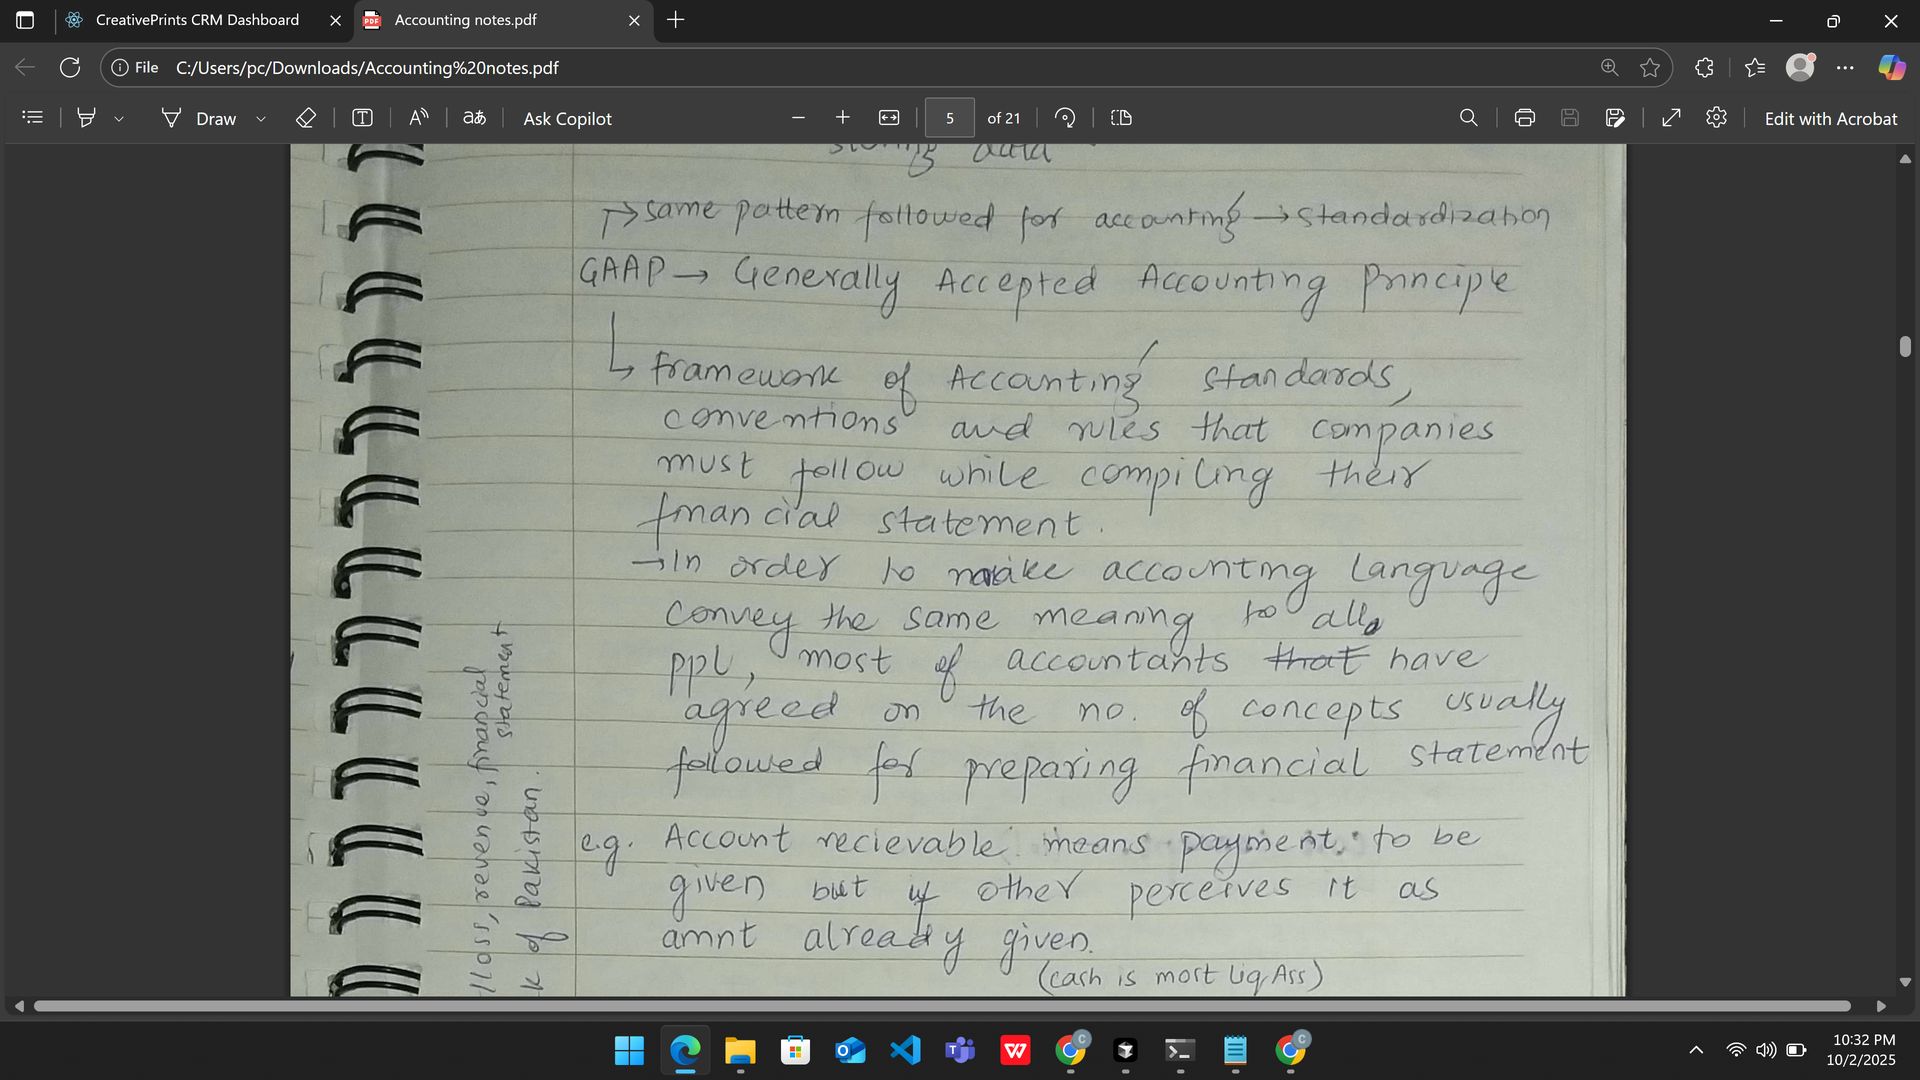 CreativePrints CRM Dashboard
Accounting notes.pdf
File C:/Users/pc/Downloads/Accounting%20notes.pdf
Draw
Ask Copilot
5 of 21
Edit with Acrobat
storing data
→ same pattern followed for accounting → standardization
GAAP → Generally Accepted Accounting Principle
↳ framework of Accounting standards,
conventions and rules that companies
must follow while compiling their
financial statement.
→ In order to make accounting language
convey the same meaning to all
ppl, most of accountants that have
agreed on the no. of concepts usually
followed for preparing financial statement
e.g. Account recievable means payment to be
given but if other perceives it as
amnt already given.
(cash is most Liq Ass)
loss, revenue, financial
statement
of Pakistan.
10:32 PM
10/2/2025